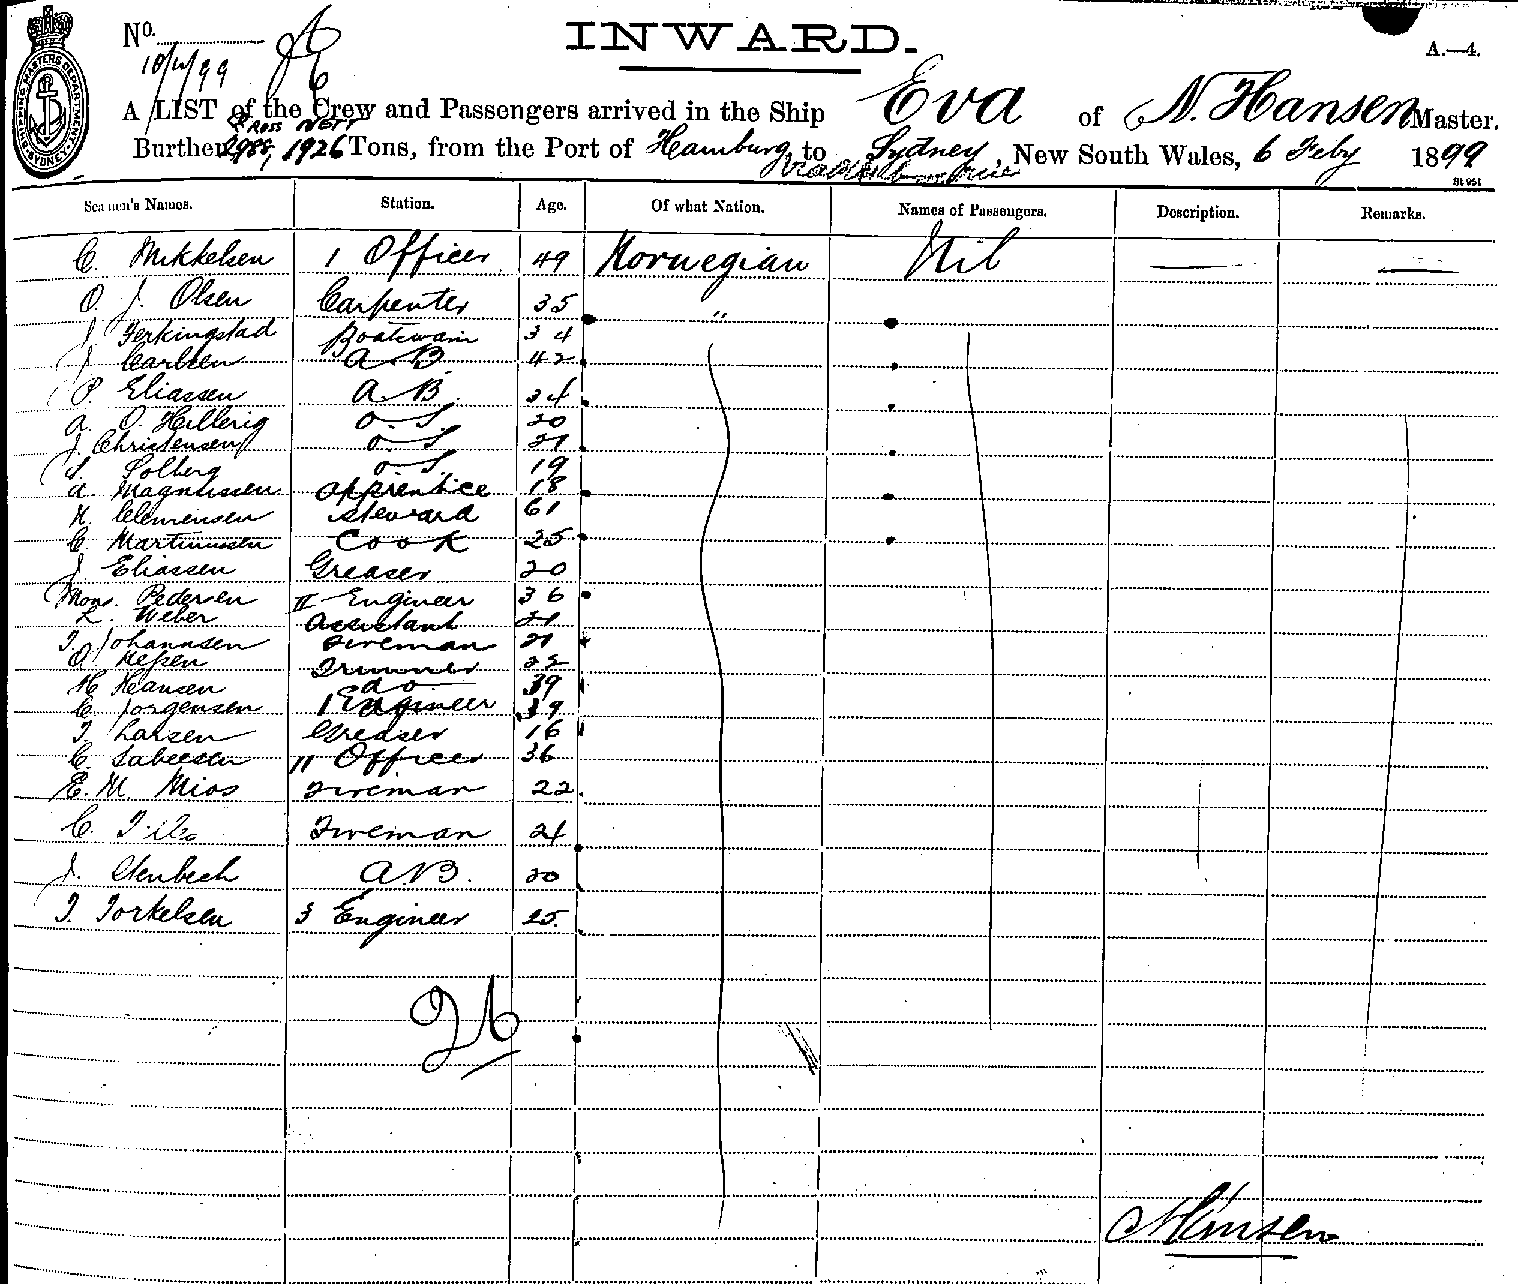 No.
INWARD.
A.—4.
SHIPPING MASTERS DEPARTMENT SYDNEY
A LIST of the Crew and Passengers arrived in the Ship Eva of N. Hansen Master.
Gross Nett
Burthen 2988, 1926 Tons, from the Port of Hamburg, to Sydney, New South Wales, 6 Feby 1899
via Melbourne
Seamen's Names. Station. Age. Of what Nation. Names of Passengers. Description. Remarks.
C. Mikkelsen 1 Officer 49 Norwegian Nil
O. J. Olsen Carpenter 35 "
J. Ferkingstad Boatswain 34
J. Carlsen A.B. 42
P. Eliassen A.B. 24
A. O. Hillerig O.S. 20
J. Christensen O.S. 21
S. Solberg O.S. 19
A. Magnussen Apprentice 18
N. Clemensen Steward 61
C. Martinussen Cook 25
J. Eliassen Greaser 20
Mons. Pedersen II Engineer 36
L. Weber Assistant 21
T. Johannsen Fireman 21
O. Trimmer 22
H. Hansen do 39
C. Jorgensen 1 Engineer 39
T. Larsen Greaser 16
C. II Officer 36
E. M. Mios Fireman 22
C. Fireman 24
J. A.B. 20
T. Torkelsen 3 Engineer 25.
Hansen